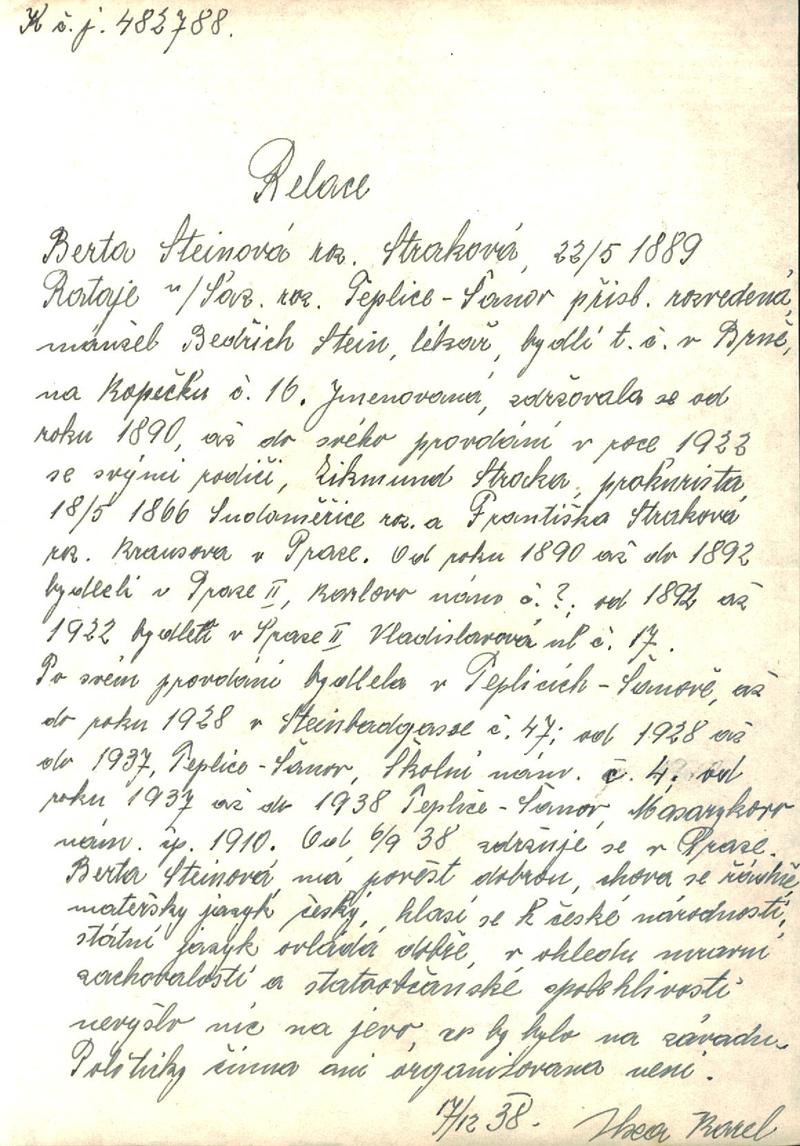 K č. j. 482788.
Relace
Berta Steinová roz. Straková, 22/5 1889
Rataje n/Sáz. roz. Teplice-Šanov přísl. rozvedená,
manžel Bedřich Stein, lékař, bydlí t. č. v Brně,
na Kopečku č. 16. Jmenovaná, zdržovala se od
roku 1890, až do svého provdání v roce 1922
se svými rodiči, Zikmund Stracka, prokurista,
18/5 1866 Sudoměřice roz. a Františka Straková
roz. Krausova v Praze. Od roku 1890 až do 1892
bydleli v Praze II, Karlovo nám č. ?; od 1892 až
1922 bydleli v Praze II Vladislavová ul č. 17.
Po svém provdání bydlela v Teplicích-Šanově, až
do roku 1928 v Steinbadgasse č. 47; od 1928 až
do 1937, Teplice-Šanov, Školní nám. č. 4; od
roku 1937 až do 1938 Teplice-Šanov, Masarykovo
nám. čp. 1910. Od 6/9 38 zdržuje se v Praze.
Berta Steinová, má pověst dobrou, chova se řádně,
matersky jazyk český, hlasí se k české národnosti,
státní jazyk ovládá dobře, v ohledu mravní
zachovalosti a statoobčanské spolehlivosti
nevyšlo nic na jevo, co by bylo na závadu.
Politicky činna ani organisovana neni.
17/12 38. Karel